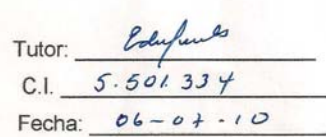 Tutor:
C.I. 5.501.334
Fecha: 06-07-10